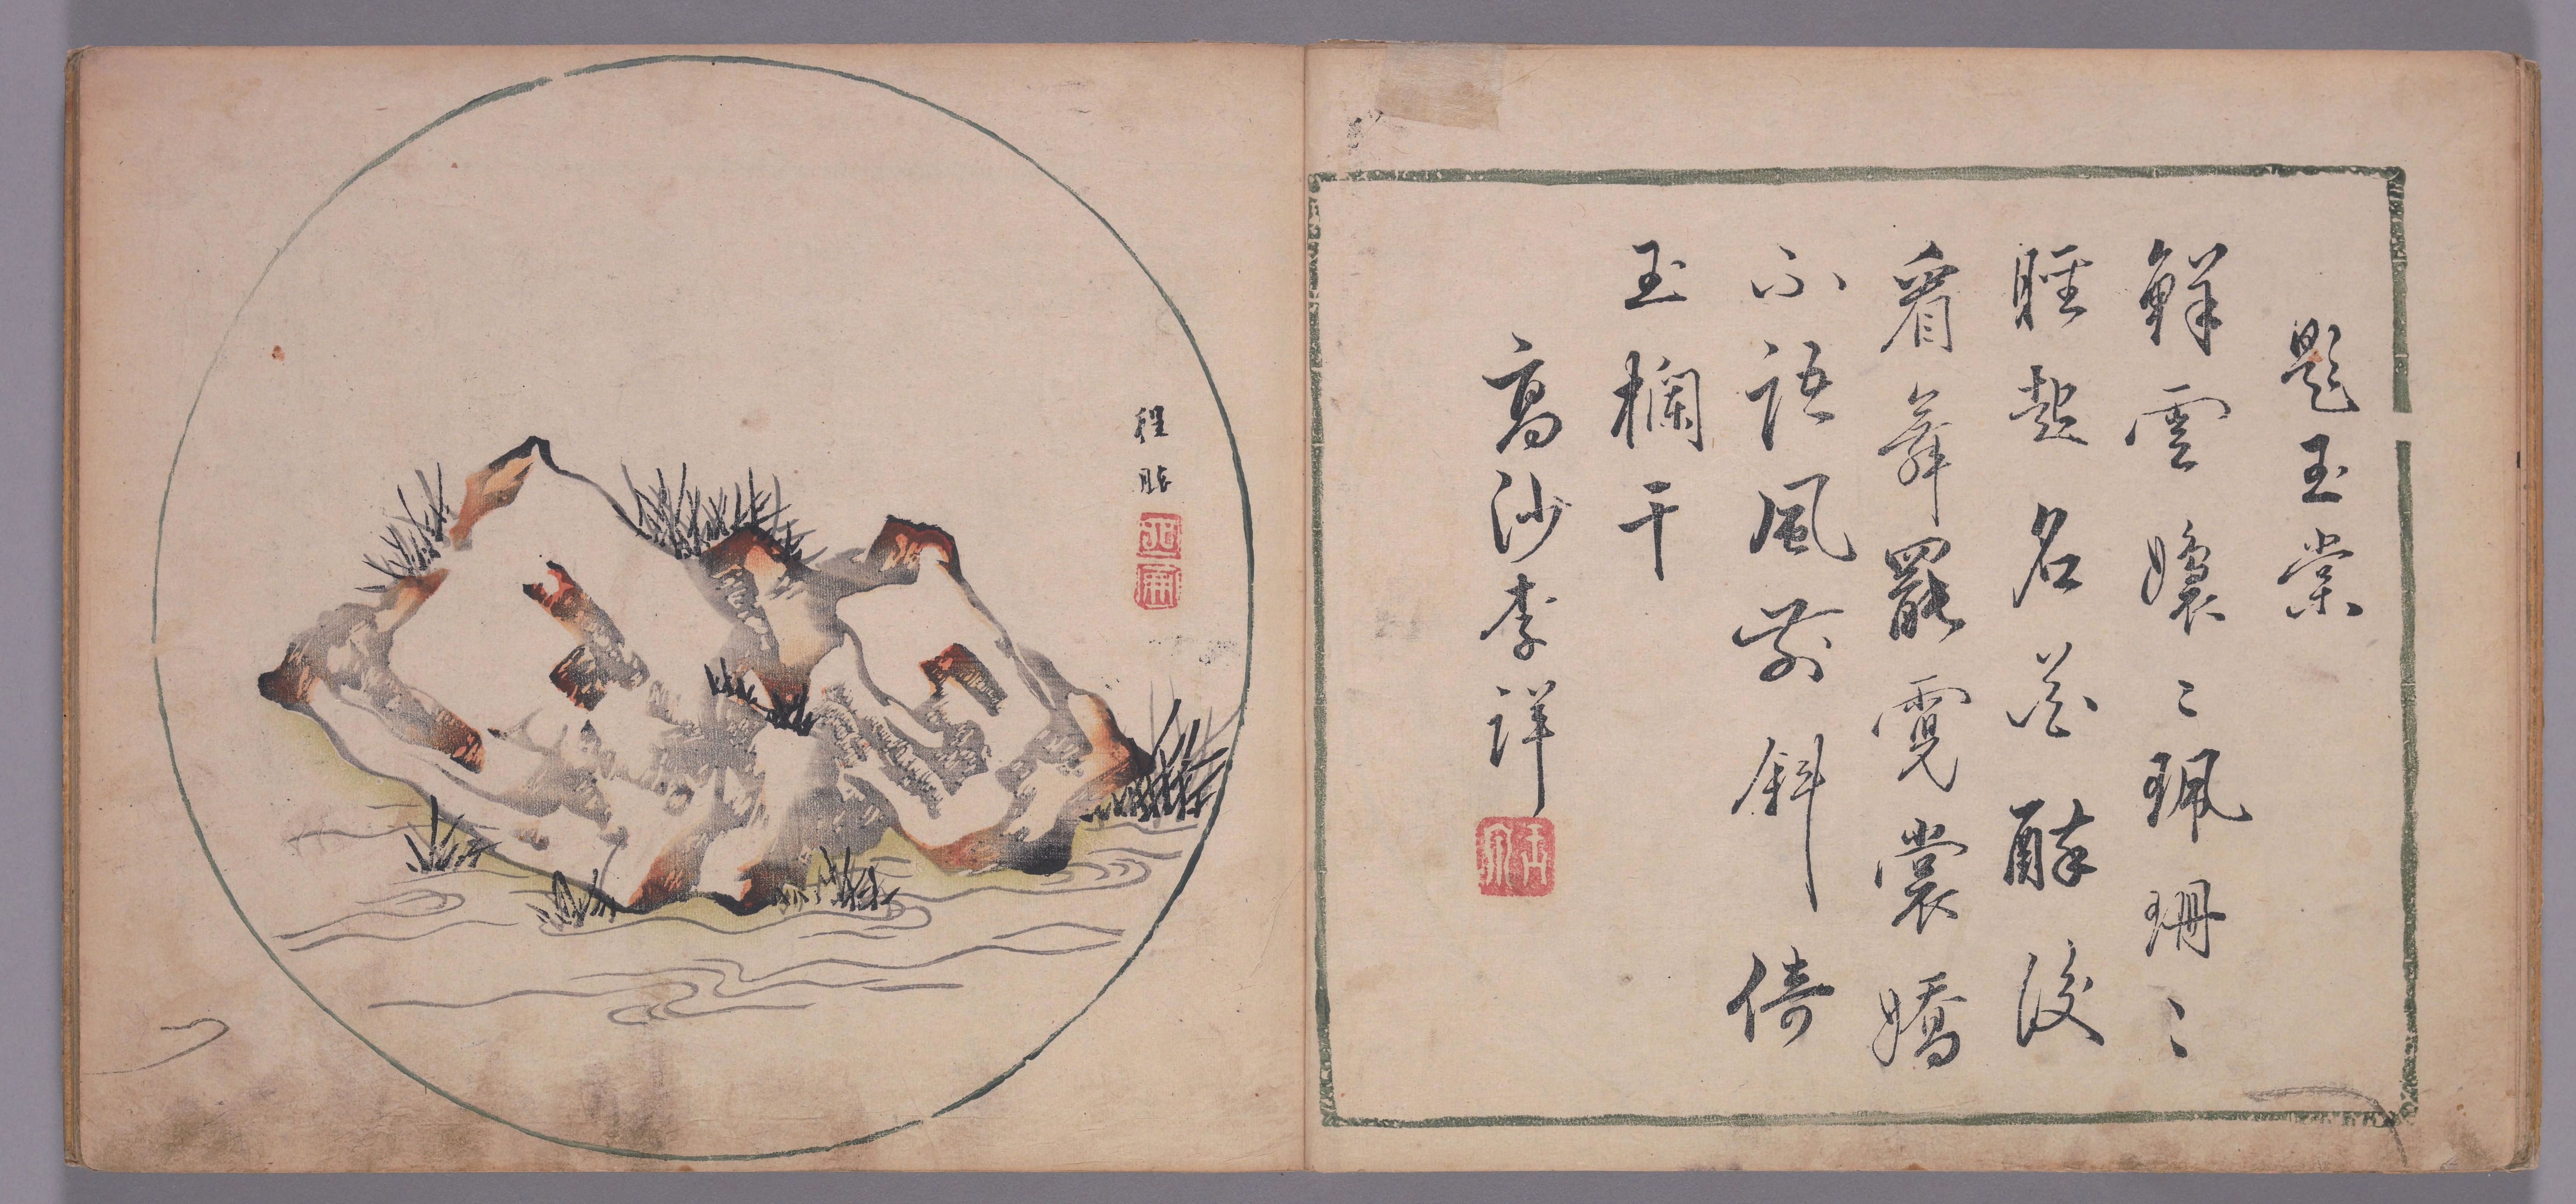 題玉棠
鮮雲嬝〻珮珊〻
睡起名花醉後
看舞罷霓裳嬌
不語風前斜倚
玉欄干
高沙李詳
程勝